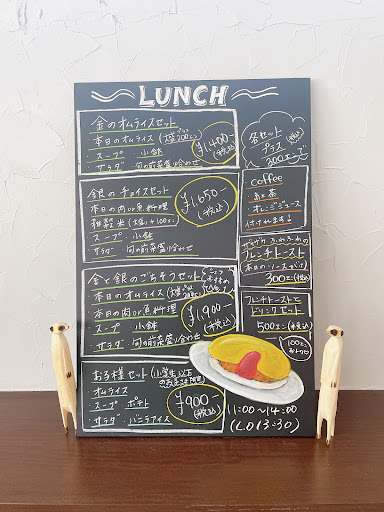 LUNCH
金のオムライスセット
本日のオムライス (大盛 200エン)
スープ 小鉢
サラダ 旬の前菜盛り合わせ
¥1,400-
(税込)
銀のチョイスセット
本日の肉or魚料理
雑穀米 (大盛り+100エン)
スープ 小鉢
サラダ 旬の前菜盛り合わせ
¥1,650-
(税込)
金と銀のごちそうセット
本日のオムライス
本日の肉or魚料理
スープ 小鉢
サラダ 旬の前菜盛り合わせ
¥1,900-
(税込)
お子様セット (小学生以下のお子さま限定)
オムライス
スープ ポテト
サラダ バニラアイス
¥900-
(税込)
各セット
プラス (税込)
200エンで
coffee
お茶
オレンジジュース
付けれます!
ふわふわの
フレンチトースト
本日のソースがけ
300エン(税込)
フレンチトーストと
ドリンクセット
500エン(税込)
100エン
おトク
11:00〜14:00
(LO13:30)